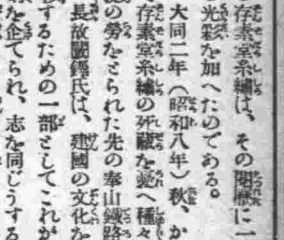 存素堂絲繡は、その閱歷に一
光彩を加へたのである。
大同二年（昭和八年）秋、か
存素堂絲繡の死藏を憂へ種々
の勞をとられた先の奉山鐵路
長故闞鐸氏は、建國の文化を
するための一部としてこれが
を企てられ、志を同じうする